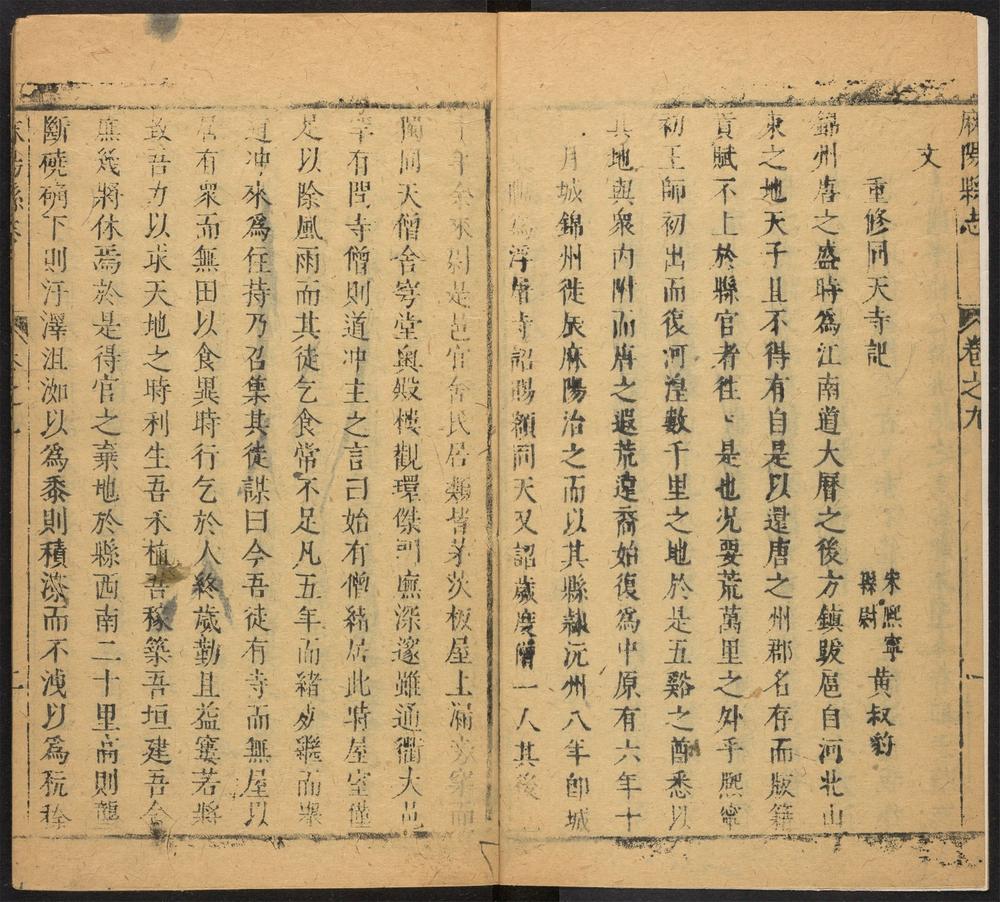 麻陽縣志 卷之九 一
文
重修同天寺記
宋熙寧
縣尉 黃叔豹
錦州唐之盛時為江南道大曆之後方鎮跋扈自河北山
東之地天子且不得有自是以還唐之州郡名存而版籍
貢賦不上於縣官者往〻是也況要荒萬里之外乎熙寧
初王師初出而復河湟數千里之地於是五谿之酋悉以
其地與衆内附而唐之遐荒遠裔始復為中原有六年十
月城錦州徙辰麻陽治之而以其縣隸沅州八年卽城
為浮屠寺詔賜額同天又詔歲度僧一人其後
十年余來尉是邑官舍民居類皆茅茨板屋上漏旁穿而
獨同天僧舍穹堂奥殿樓觀環傑門廡深邃雖通衢大邑
罕有閒寺僧則道冲主之言曰始有僧緒居此時屋室僅
足以除風雨而其徒乞食常不足凡五年而緒去繼而衆
道冲來為住持乃召集其徒謀曰今吾徒有寺而無屋以
居有衆而無田以食異時行乞於人終歲勤且益窶若將
致吾力以求天地之時利生吾禾植吾稼築吾垣建吾舍
庶幾將休焉於是得官之棄地於縣西南二十里高則隴
斷磽确下則汙澤沮洳以為黍則積潦而不洩以為秔稌
麻陽縣志 卷之九 二